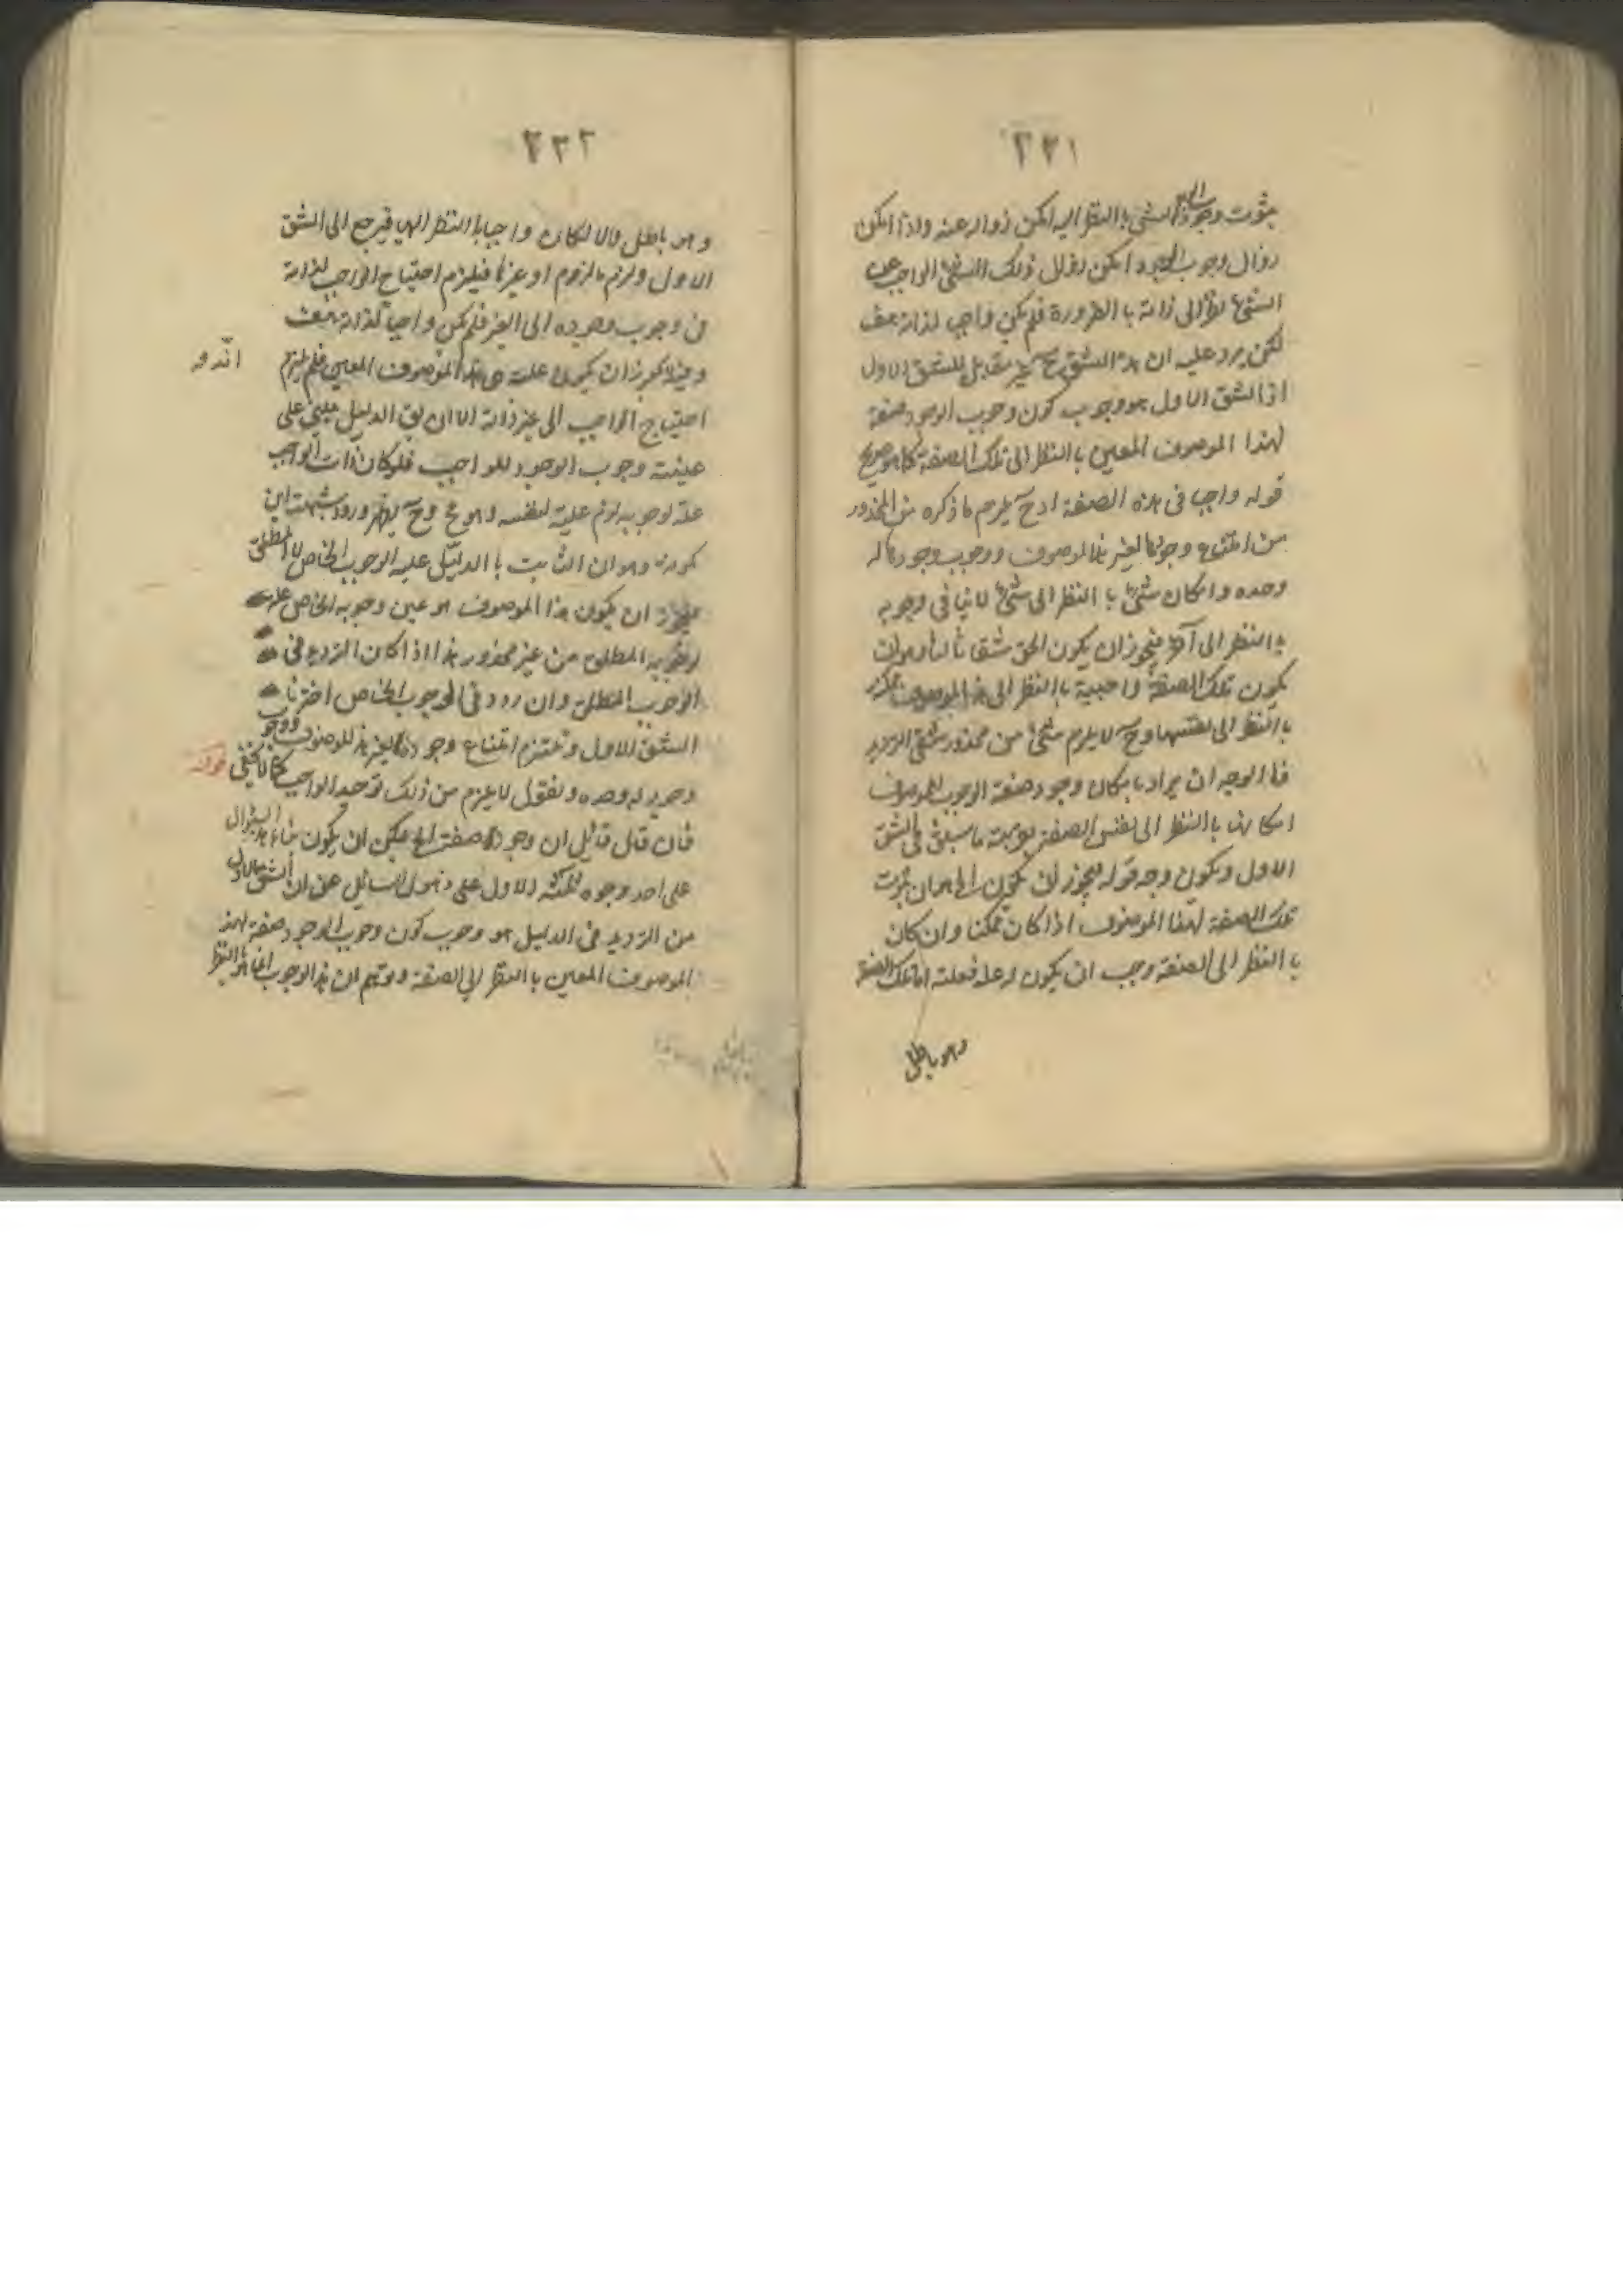 ٢٣١
بثوت وجوب الشئ باالنظر اليه امكن زواله عنه واذا امكن
زوال وجوب الوجود امكن زوال ذلك الشئ الواجب عن
الشئ نظرا الى ذاته باالظرورة فلم يكن واجب لذاته هف
لكن يرد عليه ان هذا الشق ح غير مقابل للشق الاول
اذ الشق الاول هو وجوب كون وجوب الوجود صفة
لهذا الموصوف المعين باالنظر الى تلك الصفة كما هو صريح
قوله واجبا فى هذه الصفة اذ ح يلزم ما ذكره من المحذور
من امتناع وجودها لغير هذا الموصوف ووجوب وجودها له
وحده وامكان شئ باالنظر الى شئ لا ينافى وجوبه
باالنظر الى آخر فيجوز ان يكون الحق شقا ثالثا وهو ان
يكون تلك الصفة واجبية باالنظر الى هذا الموصوف
باالنظر الى نفسها وح لا يلزم شئ من محذور شقى الترديد
فالوجه ان يراد بامكان وجود صفة الوجوب للموصوف
امكانها باالنظر الى نفس الصفة بقرينة ما سبق فى الشق
الاول ويكون وجه قوله فيجوز ان يكون الخ هو ان ثبوت
تلك الصفة لهذا الموصوف اذا كان ممكنا وان كان
باالنظر الى الصفة وجب ان يكون له علة فعلته اما تلك الصفة
وهو باطل
٢٣٢
وهو باطل والا لكان واجبا باالنظر اليها فيرجع الى الشق
الاول ولزم ما لزوم او غيرها فيلزم احتياج الواجب لذاته
فى وجوب وجوده الى الغير فلم يكن واجبا لذاته هف
وفيه لا يجوز ان يكون علته هى هذا الموصوف المعين فلم يلزم
احتياج الواجب الى غير ذاته الا ان يق الدليل مبنى على
عينية وجوب الوجود للواجب فلو كان ذات الواجب
علة لوجوبه لزم علية لنفسه وهو مح وح يظهر ورود شبهة ابن
كمونه وهو ان الثابت باالدليل علية الوجوب الخاص لا المطلق
فيجوز ان يكون هذا الموصوف هو عين وجوبه الخاص علة
لوجوبه المطلق من غير محذور هذا اذا كان الترديد فى
الوجوب المطلق وان ردد فى الوجوب الخاص اخترنا
الشق الاول ونلتزم امتناع وجودها لغير هذا الموصوف ووجوب
وجوده له وحده ونقول لا يلزم من ذلك توحيد الواجب كما لا يخفى قوله
فان قال قائل ان وجودها صفة الخ يمكن ان يكون بناء هذا السؤال
على احد وجوه ثلثة الاول على ذهول السائل عن ان الشق الاول
من الترديد فى الدليل هو وجوب كون وجوب الوجود صفة لهذا
الموصوف المعين باالنظر الى الصفة وتوهم ان هذا الوجوب انما هو باالنظر